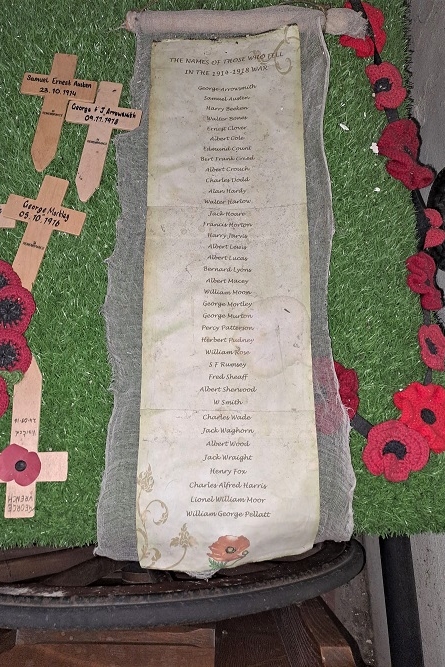 Samuel Ernest Austen
23.10.1914
IN REMEMBRANCE
George F J Arrowsmith
09.11.1918
IN REMEMBRANCE
George Mortley
03.10.1916
IN REMEMBRANCE
THE NAMES OF THOSE WHO FELL
IN THE 1914-1918 WAR
George Arrowsmith
Samuel Austen
Harry Beeken
Walter Bones
Ernest Clover
Albert Cole
Edmund Count
Bert Frank Creed
Albert Crouch
Charles Dodd
Alan Hardy
Walter Harlow
Jack Hoare
Francis Horton
Harry Jarvis
Albert Lewis
Albert Lucas
Bernard Lyons
Albert Macey
William Moon
George Mortley
George Murton
Percy Patterson
Herbert Pudney
William Rose
S F Rumsey
Fred Sheaff
Albert Sherwood
W Smith
Charles Wade
Jack Waghorn
Albert Wood
Jack Wraight
Henry Fox
Charles Alfred Harris
Lionel William Moor
William George Pellatt
GEORGE
FRENCH